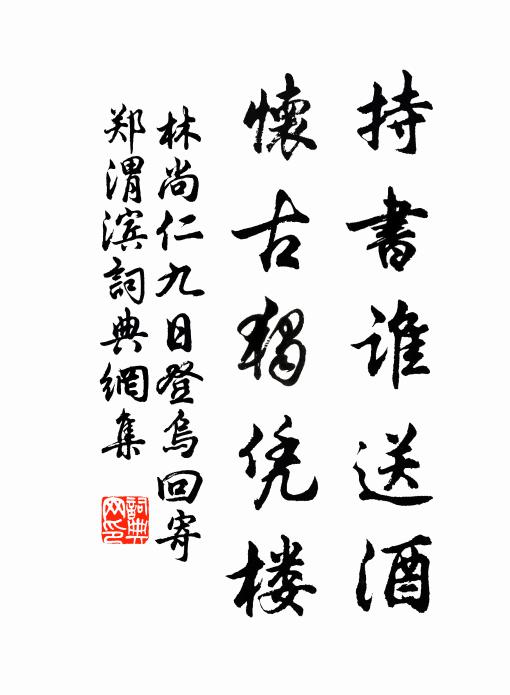 持書誰送酒
懷古獨凭楼
林尚仁九日登烏回寄
郑渭滨詞典網集
詞典
网印